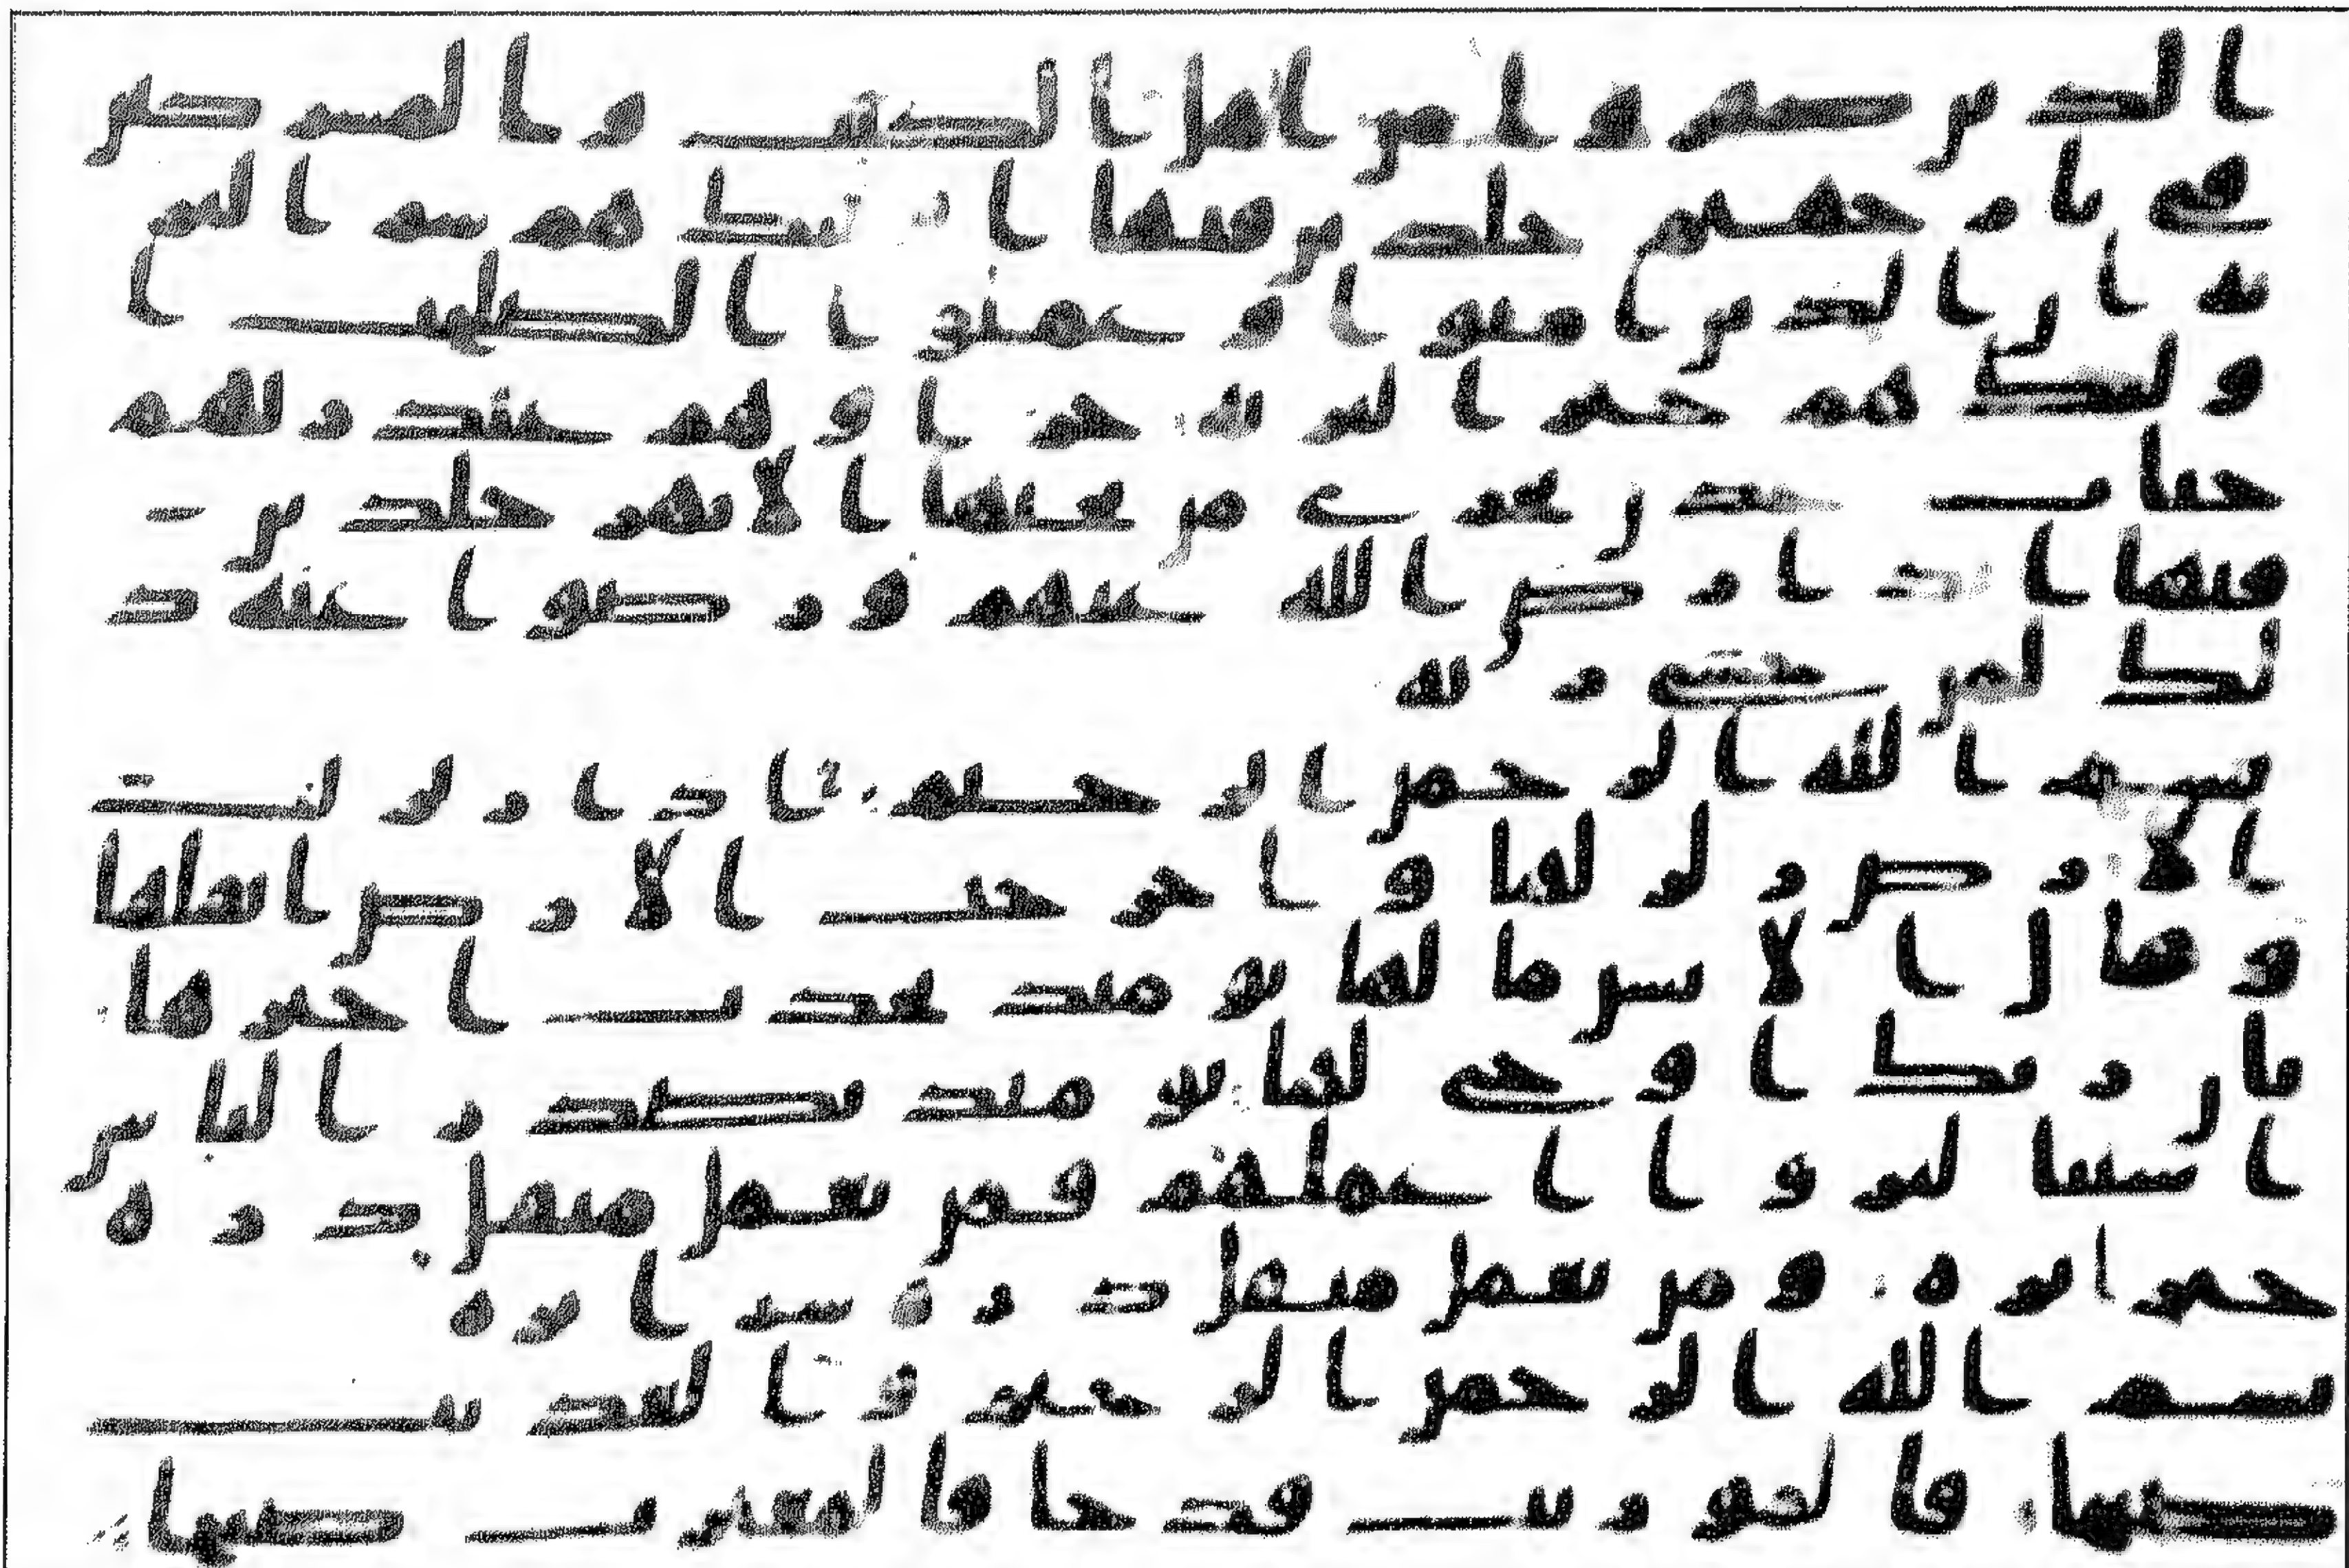 الذين كفروا من اهل الكتب والمشركين
في نار جهنم خلدين فيها اولئك هم شر البر
ية ان الذين امنوا وعملوا الصلحت ا
ولئك هم خير البرية جزاوهم عند ربهم
جنت عدن تجري من تحتها الانهر خلدين
فيها ابدا رضي الله عنهم ورضوا عنه ذ
لك لمن خشي ربه
بسم الله الرحمن الرحيم اذا زلزلت
الارض زلزالها واخرجت الارض اثقالها
وقال الانسن ما لها يومئذ تحدث اخبرها
بان ربك اوحى لها يومئذ يصدر الناس
اشتتا ليروا اعملهم فمن يعمل مثقل ذرة
خيرا يره ومن يعمل مثقل ذرة شرا يره
بسم الله الرحمن الرحيم والعديت
ضبحا فالموريت قدحا فالمغيرت صبحا